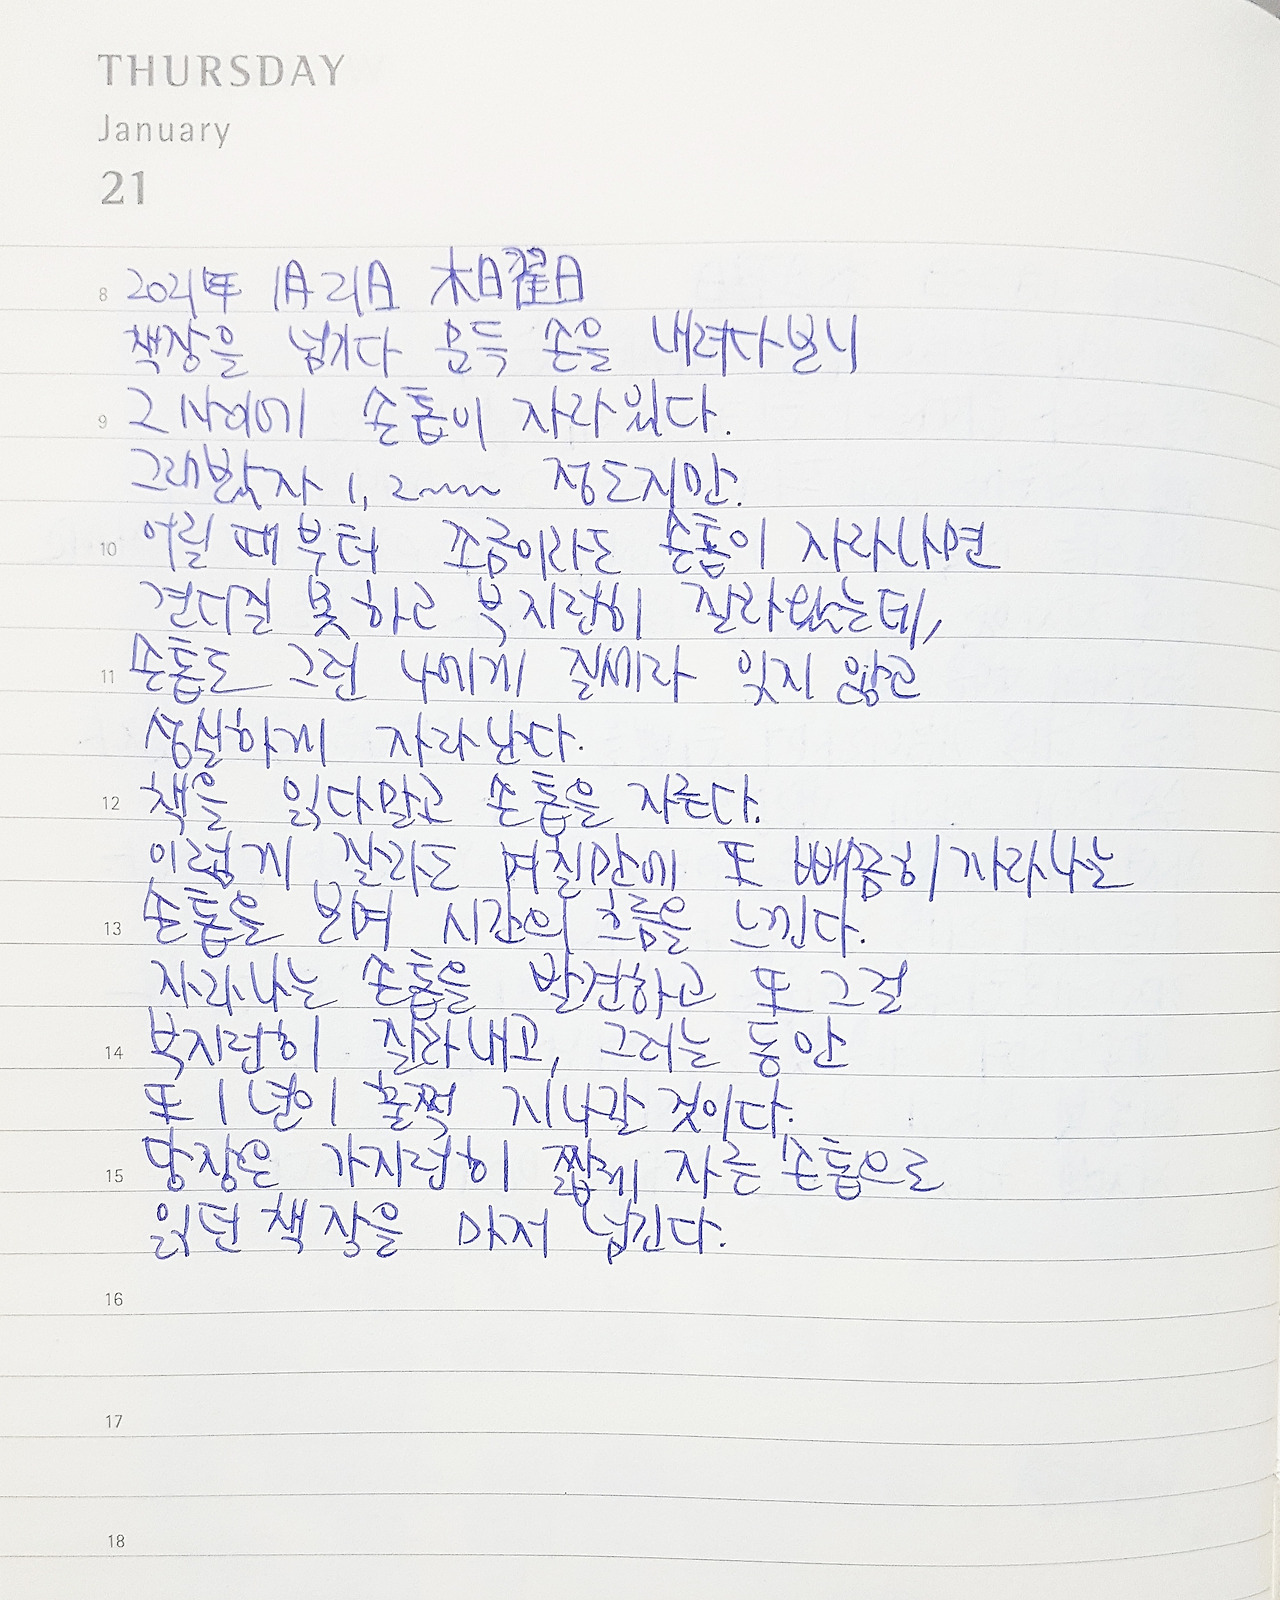 THURSDAY
January
21
8 2021年 1月 21日 木曜日
책장을 넘기다 문득 손을 내려다보니
9 그 사이에 손톱이 자라있다.
그래봤자 1, 2mm 정도지만.
10 어릴 때부터 조금이라도 손톱이 자라나면
견디질 못하고 부지런히 잘라왔는데,
11 손톱도 그런 나에게 질세라 잊지 않고
성실하게 자라난다.
12 책을 읽다말고 손톱을 자른다.
이렇게 잘라도 며칠만에 또 빼꼼히 자라나는
13 손톱을 보며 시간의 흐름을 느낀다.
자라나는 손톱을 발견하고 또 그걸
14 부지런히 잘라내고, 그러는 동안
또 1년이 훌쩍 지나갈 것이다.
15 당장은 가지런히 짧게 자른 손톱으로
읽던 책장을 마저 넘긴다.
16
17
18